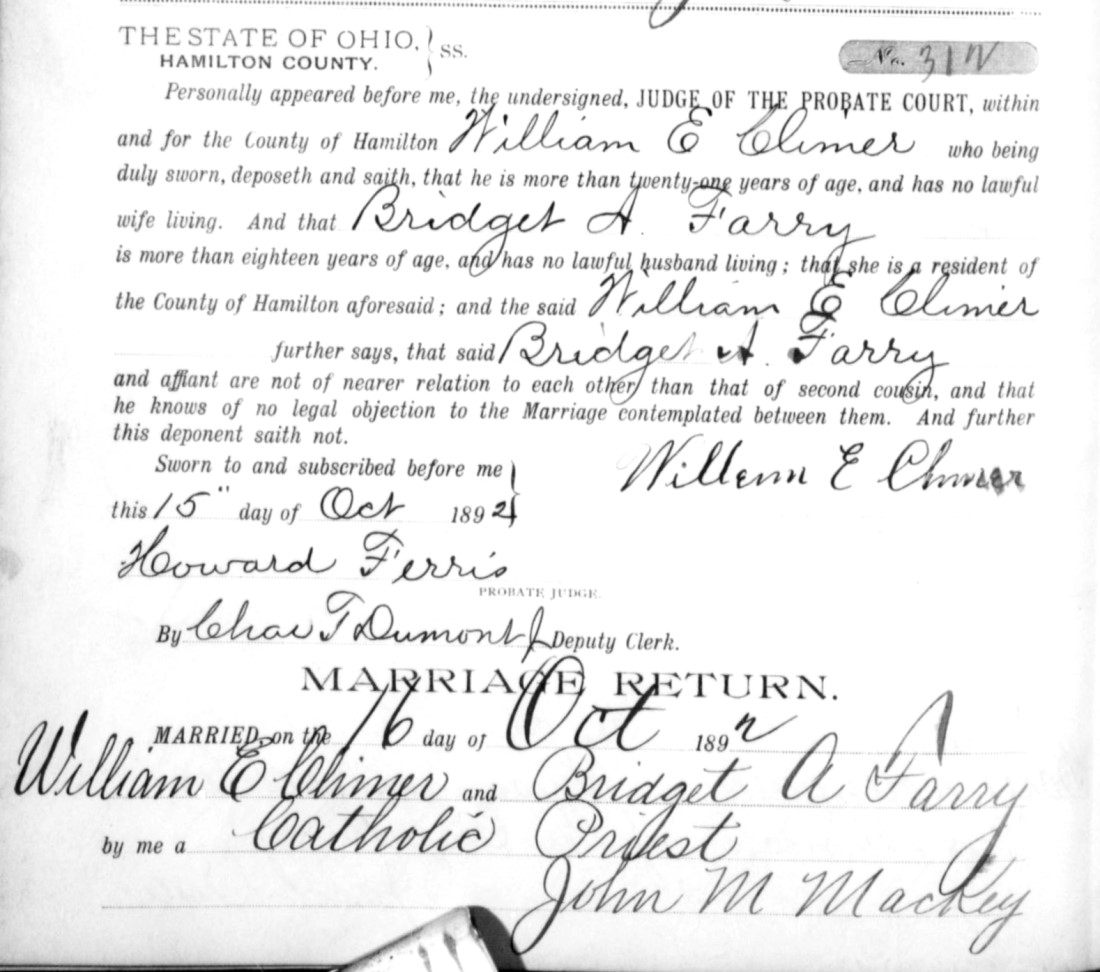 THE STATE OF OHIO, } SS.
HAMILTON COUNTY.
No. 312
Personally appeared before me, the undersigned, JUDGE OF THE PROBATE COURT, within
and for the County of Hamilton William E Climer who being
duly sworn, deposeth and saith, that he is more than twenty-one years of age, and has no lawful
wife living. And that Bridget A. Farry
is more than eighteen years of age, and has no lawful husband living; that she is a resident of
the County of Hamilton aforesaid; and the said William E Climer
further says, that said Bridget A. Farry
and affiant are not of nearer relation to each other than that of second cousin, and that
he knows of no legal objection to the Marriage contemplated between them. And further
this deponent saith not.
Sworn to and subscribed before me
William E Climer
this 15" day of Oct 1892
Howard Ferris
PROBATE JUDGE.
By Chas T Dumont Jr Deputy Clerk.
MARRIAGE RETURN.
MARRIED on the 16 day of Oct 1892
William E Climer and Bridget A Farry
by me a Catholic Priest
John M Mackey